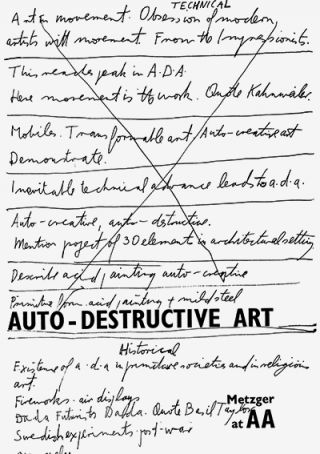 TECHNICAL
Art in movement. Obsession of modern
artists with movement. From the Impressionists.
This reaches peak in A.D.A.
Here movement is the work. Quote Kahnweiler.
Mobiles. Transformable art Auto-creative art
Demonstrate.
Inevitable technical advance leads to a.d.a.
Auto-creative, auto-destructive.
Mention project of 30 element in architectural setting
Describe acid painting auto-creative
Primitive form. acid painting + mild steel
AUTO-DESTRUCTIVE ART
Historical
Existence of a.d.a in primitive societies and in religious
art.
Fireworks. air displays
Dada Futurists Quote Basil Taylor
Swedish experiments post-war
Metzger
at AA